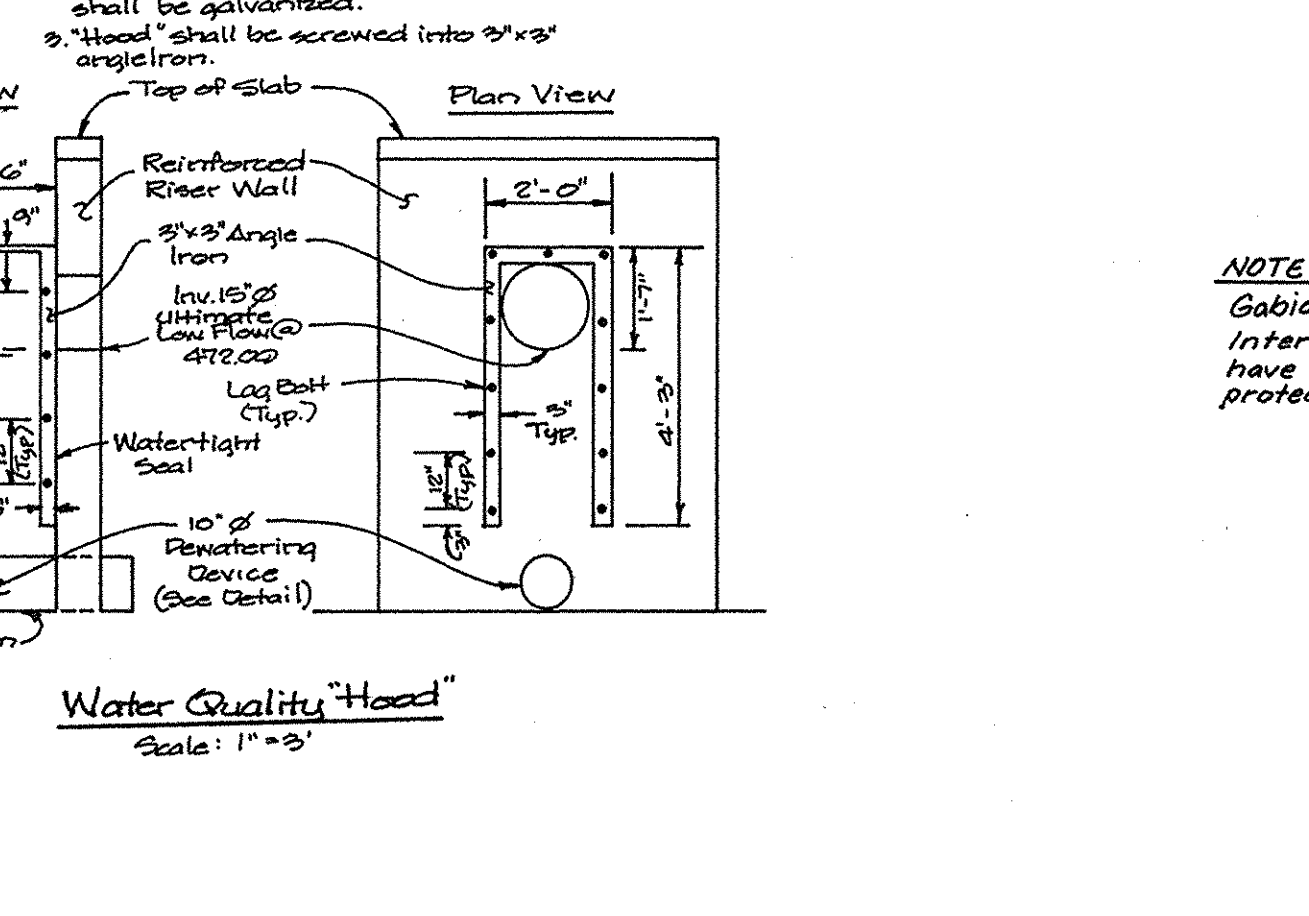 shall be galvanized.
3. "Hood" shall be screwed into 3"x3"
angle iron.
Top of Slab
Plan View
6"
9"
Reinforced
Riser Wall
2'-0"
3"x3" Angle
Iron
1'-7"
Inv. 15" Ø
Ultimate
Low Flow @
472.00
Lag Bolt
(Typ.)
3"
Typ.
4'-3"
Watertight
Seal
12"
(Typ)
12"
(Typ.)
3"
10" Ø
Dewatering
Device
(See Detail)
Water Quality "Hood"
Scale: 1" = 3'
NOTE
Inter
have